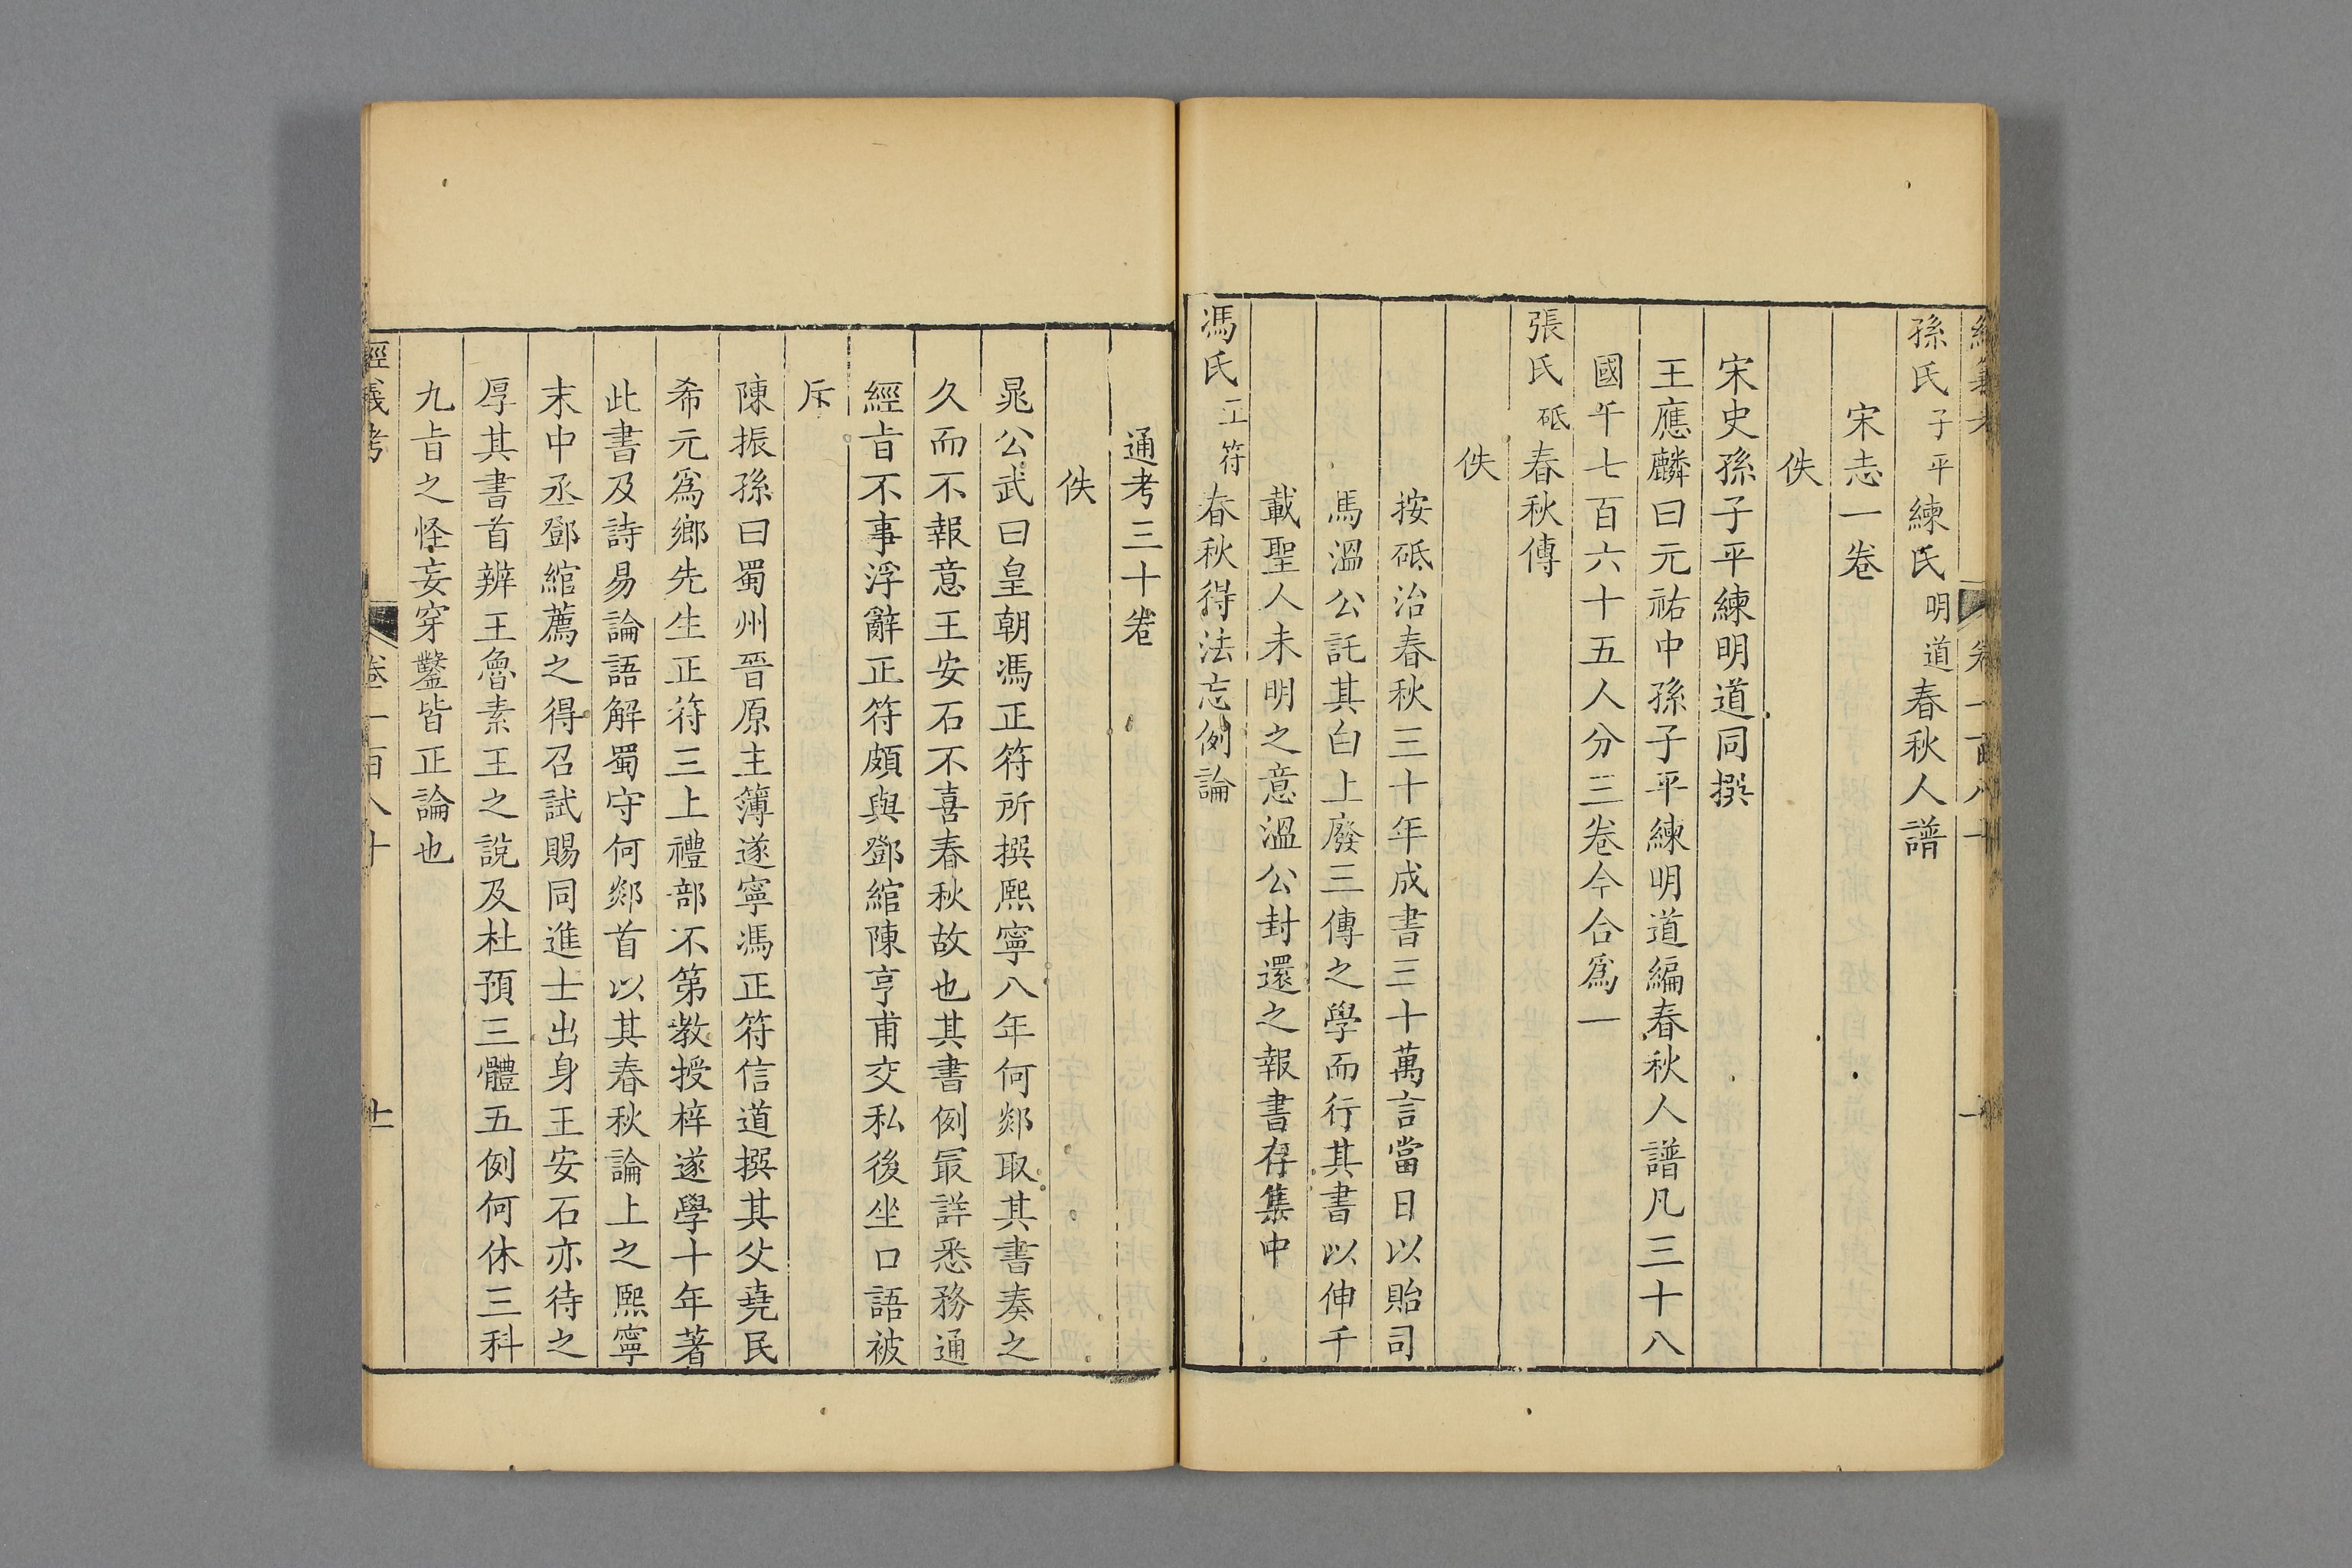 孫氏子平練氏明道春秋人譜
宋志一卷
佚
宋史孫子平練明道同撰
王應麟曰元祐中孫子平練明道編春秋人譜凡三十八
國千七百六十五人分三卷今合爲一
張氏砥春秋傳
佚
按砥治春秋三十年成書三十萬言當日以貽司
馬溫公託其白上廢三傳之學而行其書以伸千
載聖人未明之意溫公封還之報書存集中
馮氏正符春秋得法忘例論
通考三十卷
佚
晁公武曰皇朝馮正符所撰熙寧八年何郯取其書奏之
久而不報意王安石不喜春秋故也其書例冣詳悉務通
經㫖不事浮辭正符頗與鄧綰陳亨甫交私後坐口語被
斥
陳振孫曰蜀州晉原主簿遂寧馮正符信道撰其父堯民
希元爲鄉先生正符三上禮部不第教授梓遂學十年著
此書及詩易論語解蜀守何郯首以其春秋論上之熙寧
末中丞鄧綰薦之得召試賜同進士出身王安石亦待之
厚其書首辨王魯素王之說及杜預三體五例何休三科
九㫖之怪妄穿鑿皆正論也
經義考 卷一百八十 十一